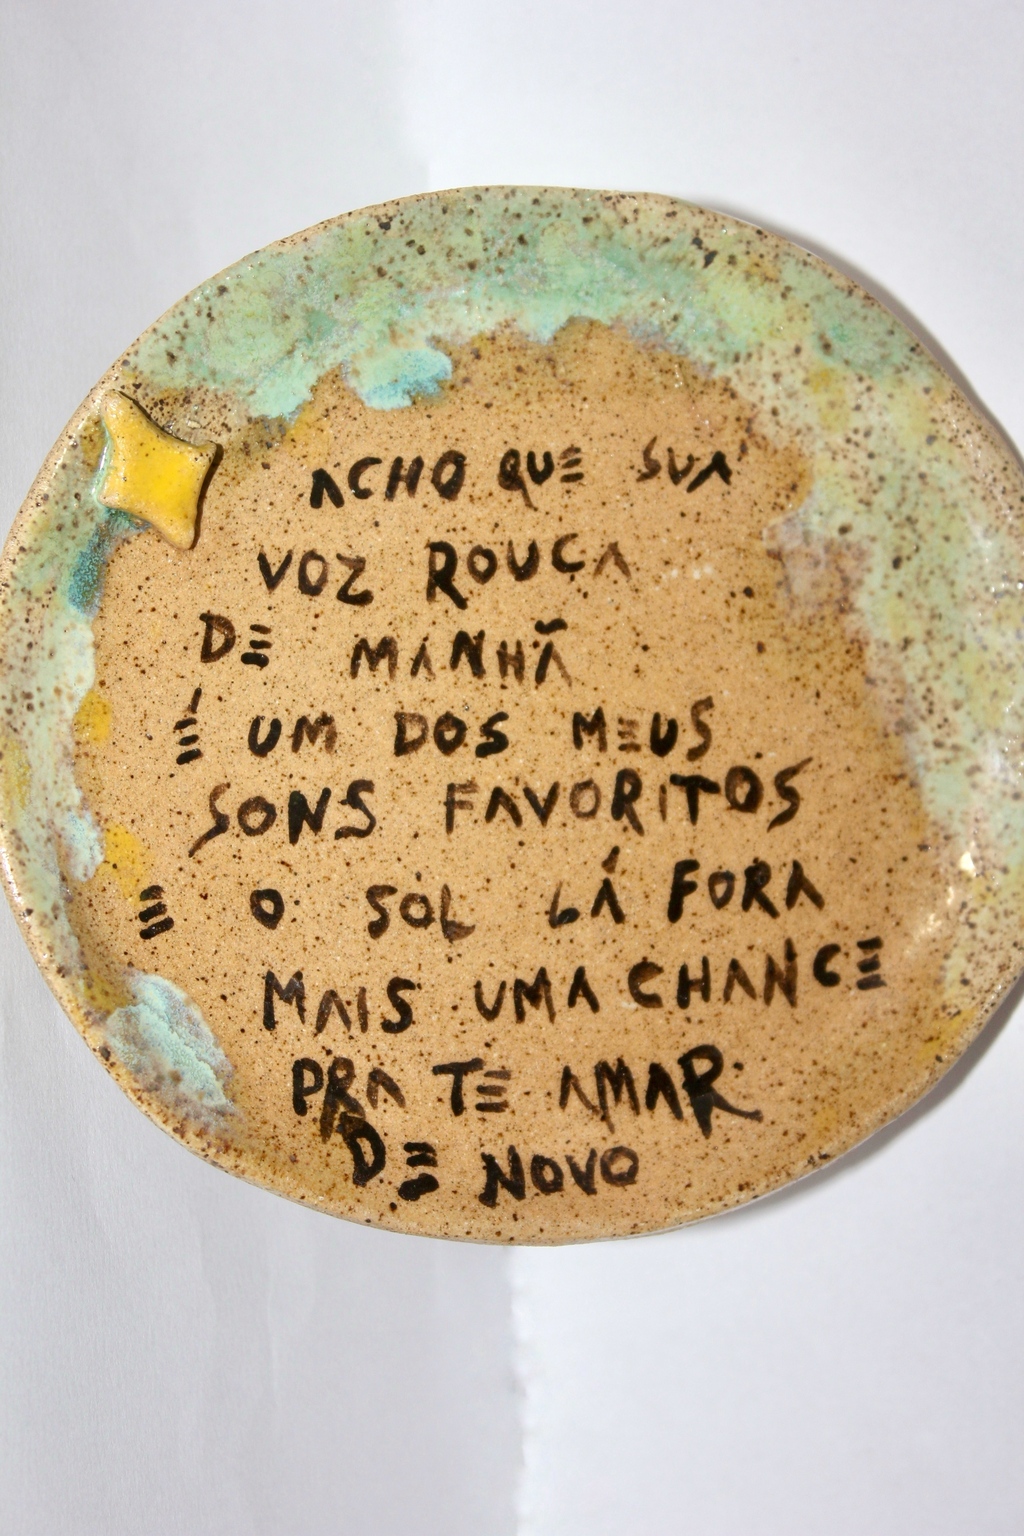 ACHO QUE SUA
VOZ ROUCA
DE MANHÃ
É UM DOS MEUS
SONS FAVORITOS
E O SOL LÁ FORA
MAIS UMA CHANCE
PRA TE AMAR
DE NOVO